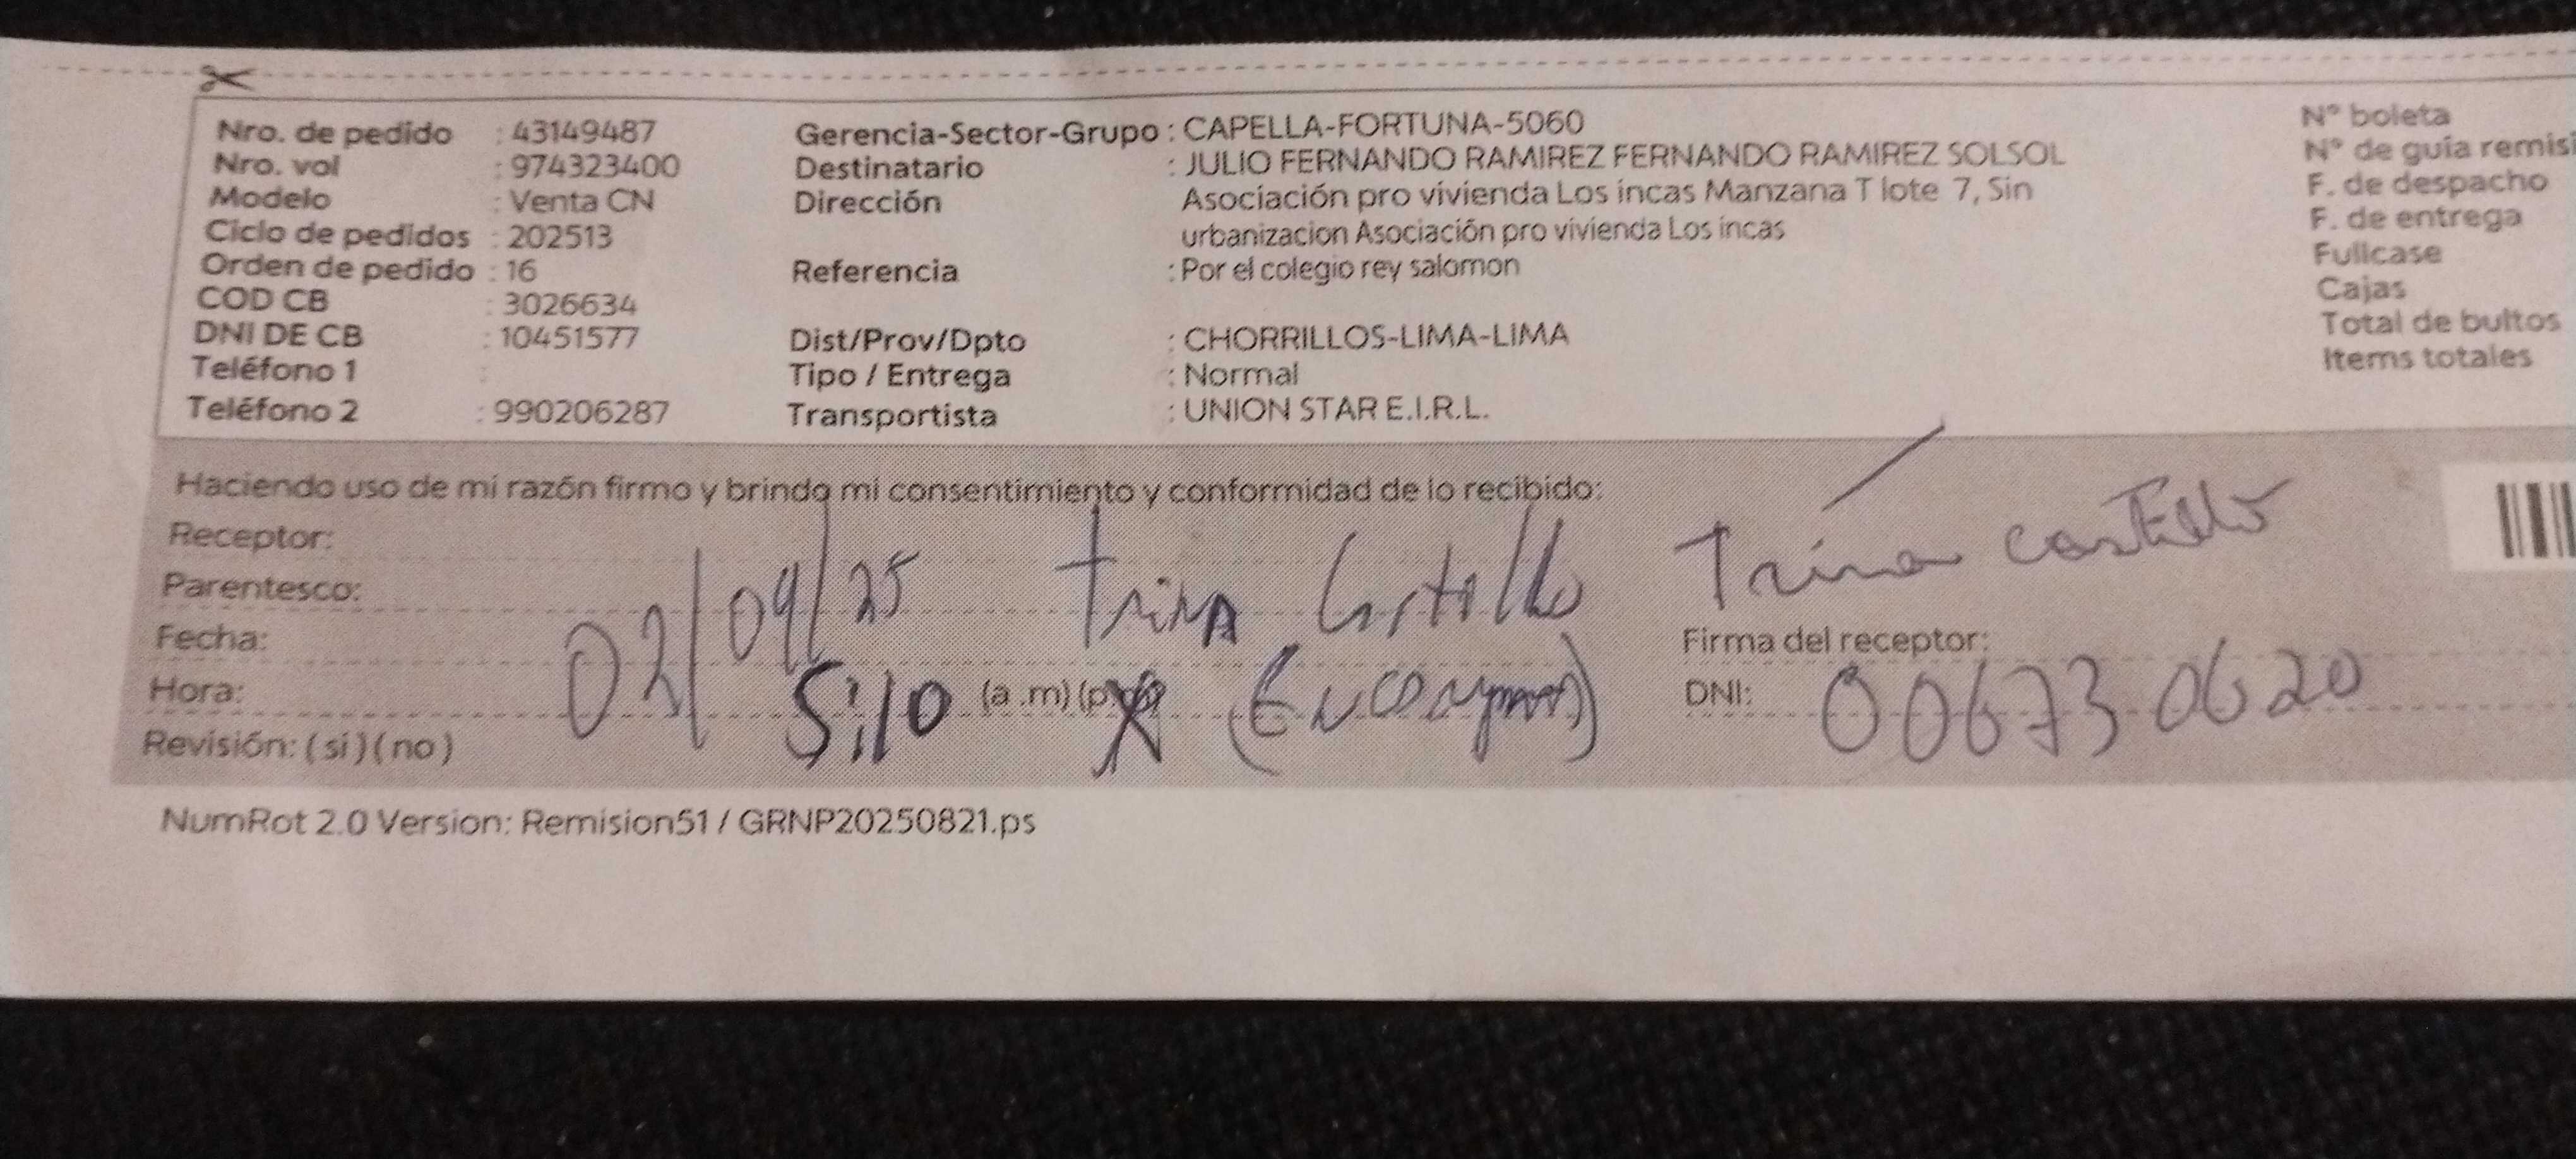 Nro. de pedido : 43149487
Nro. vol : 974323400
Modelo : Venta CN
Ciclo de pedidos : 202513
Orden de pedido : 16
COD CB : 3026634
DNI DE CB : 10451577
Teléfono 1 :
Teléfono 2 : 990206287
Gerencia-Sector-Grupo : CAPELLA-FORTUNA-5060
Destinatario : JULIO FERNANDO RAMIREZ FERNANDO RAMIREZ SOLSOL
Dirección Asociación pro vivienda Los incas Manzana T lote 7, Sin
urbanizacion Asociación pro vivienda Los incas
Referencia : Por el colegio rey salomon
Dist/Prov/Dpto : CHORRILLOS-LIMA-LIMA
Tipo / Entrega : Normal
Transportista : UNION STAR E.I.R.L.
N° boleta
N° de guía remisi
F. de despacho
F. de entrega
Fullcase
Cajas
Total de bultos
Items totales
Haciendo uso de mi razón firmo y brindo mi consentimiento y conformidad de lo recibido:
Receptor: Trina Castillo
Parentesco:
Fecha: 02/09/25
Hora: 5:10 (a.m) (p.m)
Revisión: (si) (no)
Trina Castillo
Firma del receptor:
DNI: 006730620
NumRot 2.0 Version: Remision51 / GRNP20250821.ps